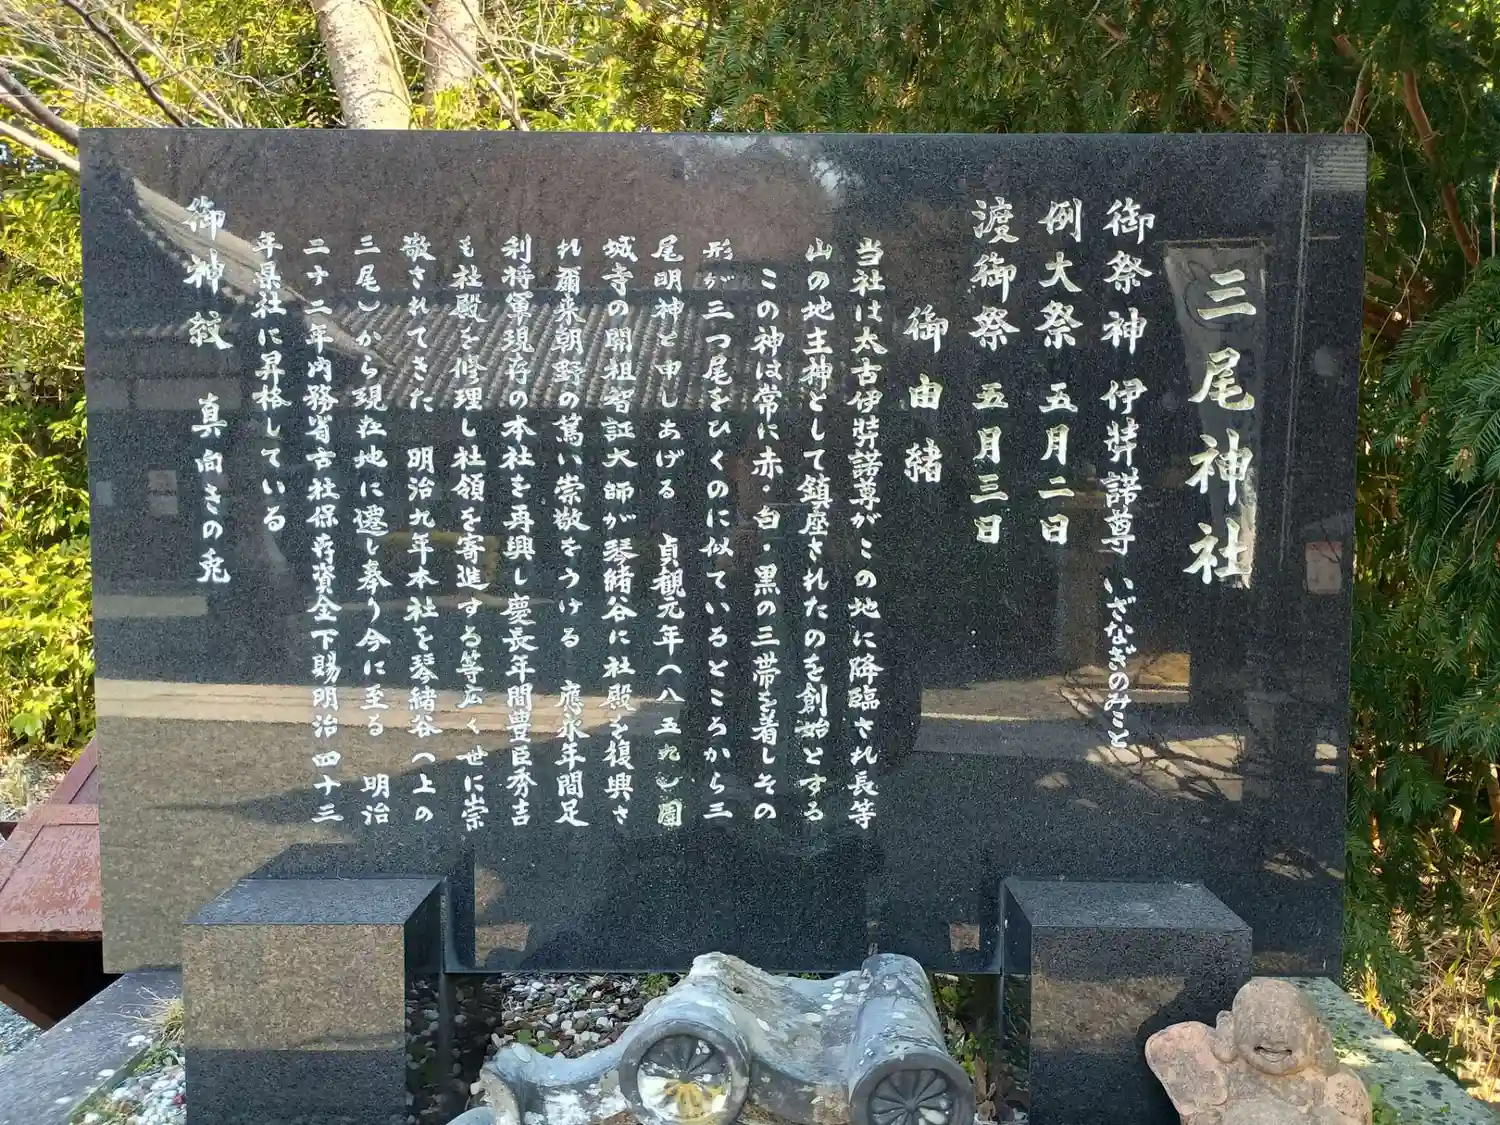 三尾神社
御祭神　伊弉諾尊　いざなぎのみこと
例大祭　五月二日
渡御祭　五月三日
御由緒
当社は太古伊弉諾尊がこの地に降臨され長等
山の地主神として鎮座されたのを創始とする
この神は常に赤・白・黒の三帯を着しその
形が三つ尾をひくのに似ているところから三
尾明神と申しあげる　貞観元年（八五九）園
城寺の開祖智証大師が琴緒谷に社殿を復興さ
れ爾来朝野の篤い崇敬をうける　應永年間足
利将軍現存の本社を再興し慶長年間豊臣秀吉
も社殿を修理し社領を寄進する等広く世に崇
敬されてきた　明治九年本社を琴緒谷（上の
三尾）から現在地に遷し奉り今に至る　明治
二十二年内務省古社保存資金下賜明治四十三
年県社に昇格している
御神紋　真向きの兎